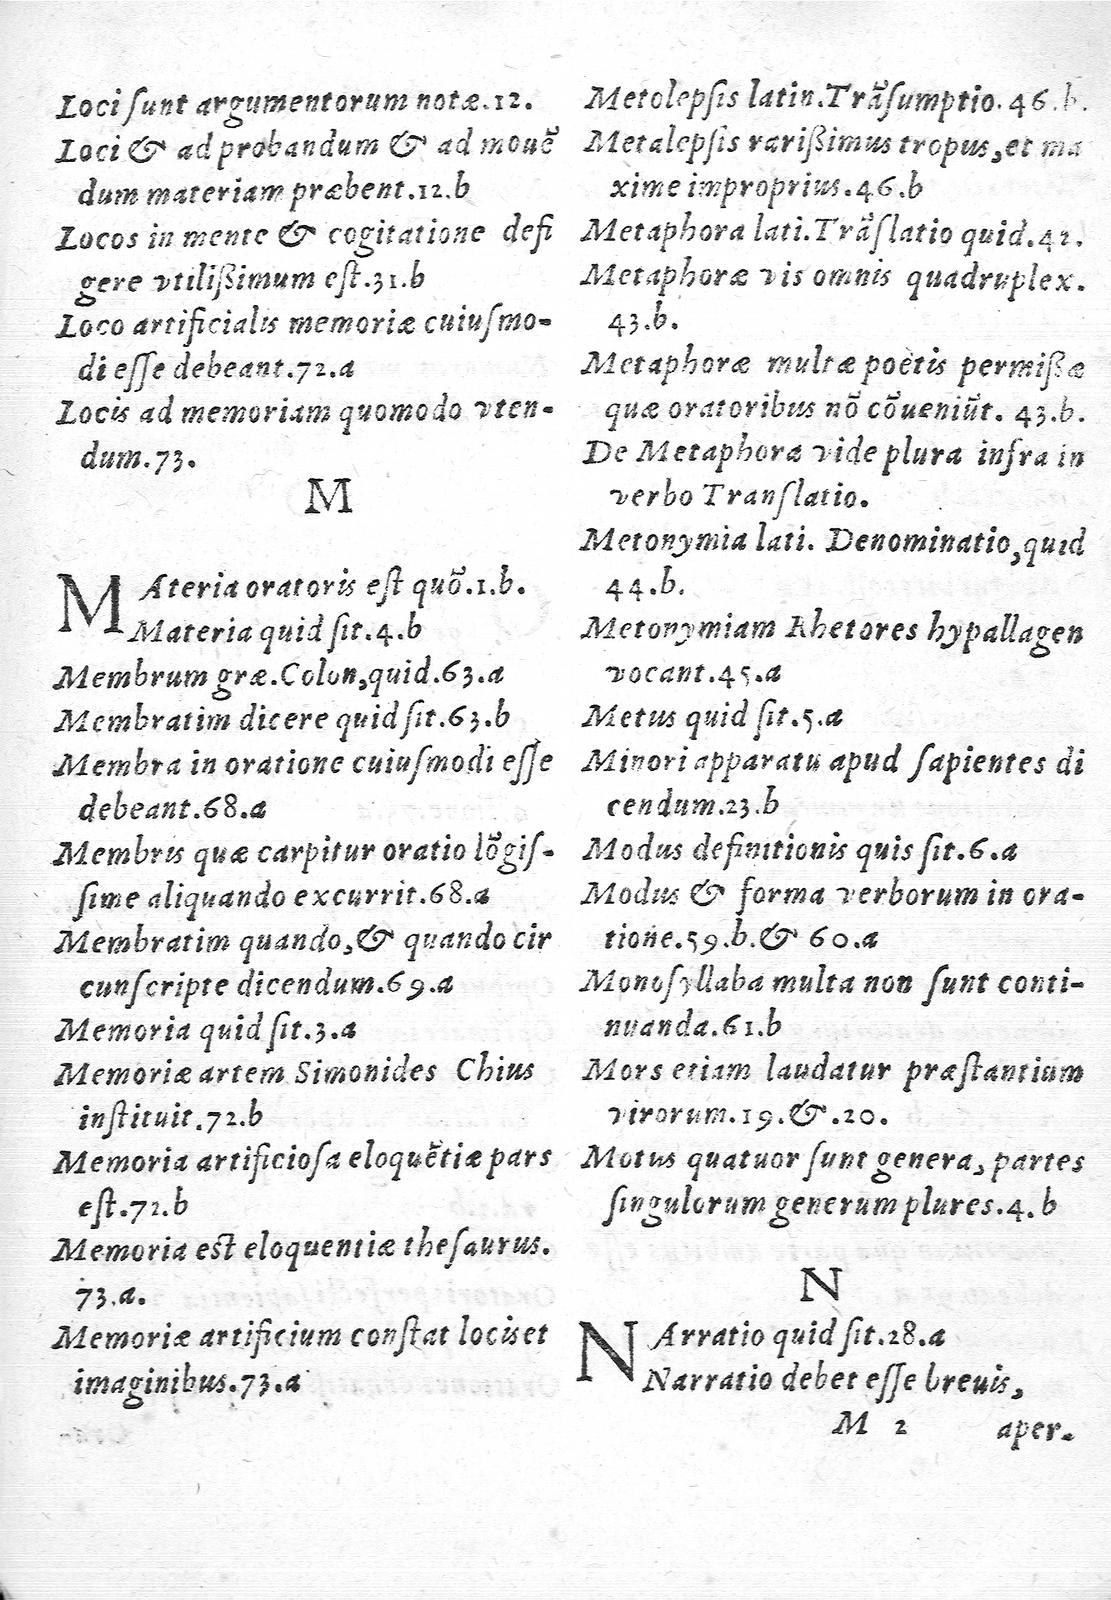 Loci ſunt argumentorum notæ.12.
Loci & ad probandum & ad mouẽ
dum materiam præbent.12.b
Locos in mente & cogitatione defi
gere vtilißimum eſt.31.b
Loco artificialis memoriæ cuiuſmo-
di eſſe debeant.72.a
Locis ad memoriam quomodo vten-
dum.73.
M
MAteria oratoris eſt quõ.1.b.
Materia quid ſit.4.b
Membrum græ.Colon,quid.63.a
Membratim dicere quid ſit.63.b
Membra in oratione cuiuſmodi eſſe
debeant.68.a
Membris quæ carpitur oratio lõgiſ-
ſime aliquando excurrit.68.a
Membratim quando,& quando cir
cunſcripte dicendum.69.a
Memoria quid ſit.3.a
Memoriæ artem Simonides Chius
inſtituit.72.b
Memoria artificioſa eloquẽtiæ pars
eſt.72.b
Memoria est eloquentiæ theſaurus.
73.a.
Memoriæ artificium conſtat locis et
imaginibus.73.a
Metolepſis latin.Trãſumptio.46.b.
Metalepſis rarißimus tropus,et ma
xime improprius.46.b
Metaphora lati.Trãſlatio quid.42.
Metaphoræ vis omnis quadruplex.
43.b.
Metaphoræ multæ poëtis permißæ
quæ oratoribus nõ cõueniũt. 43.b.
De Metaphora vide plura infra in
verbo Tranſlatio.
Metonymia lati. Denominatio,quid
44.b.
Metonymiam Rhetores hypallagen
vocant.45.a
Metus quid ſit.5.a
Minori apparatu apud ſapientes di
cendum.23.b
Modus definitionis quis ſit.6.a
Modus & forma verborum in ora-
tione.59.b.& 60.a
Monoſyllaba multa non ſunt conti-
nuanda.61.b
Mors etiam laudatur præſtantium
virorum.19.&.20.
Motus quatuor ſunt genera, partes
ſingulorum generum plures.4.b
N
NArratio quid ſit.28.a
Narratio debet eſſe breuis,
M 2 aper-